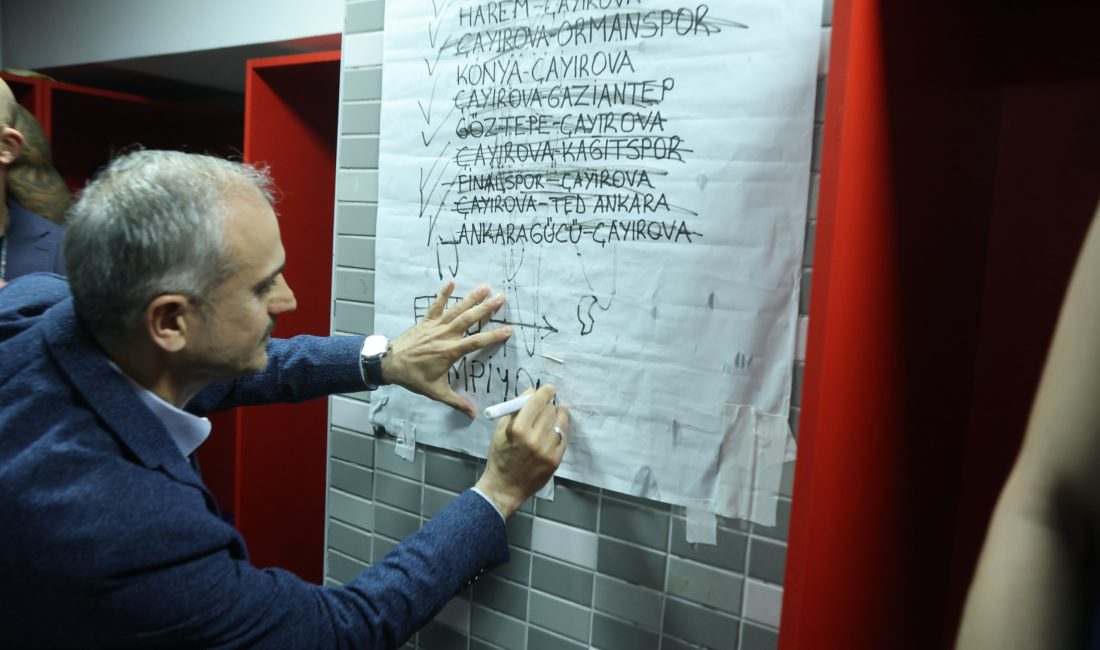 HAREM-ÇAYIROVA
ÇAYIROVA-ORMANSPOR
KONYA-ÇAYIROVA
ÇAYIROVA-GAZİANTEP
GÖZTEPE-ÇAYIROVA
ÇAYIROVA-KAĞITSPOR
FİNALSPOR-ÇAYIROVA
ÇAYIROVA-TED ANKARA
ANKARAGÜCÜ-ÇAYIROVA
MPİYO